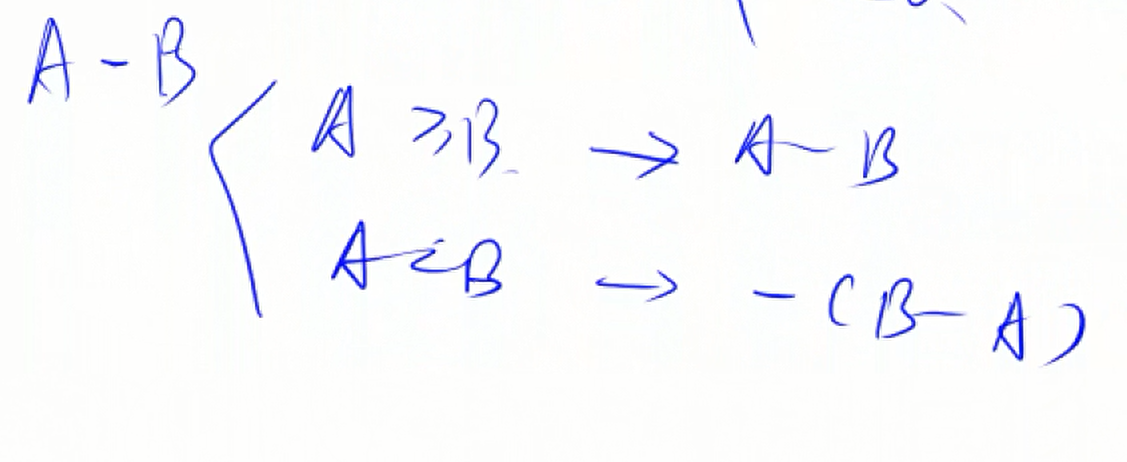 A - B
A ≥ B → A - B
A < B → - ( B - A )